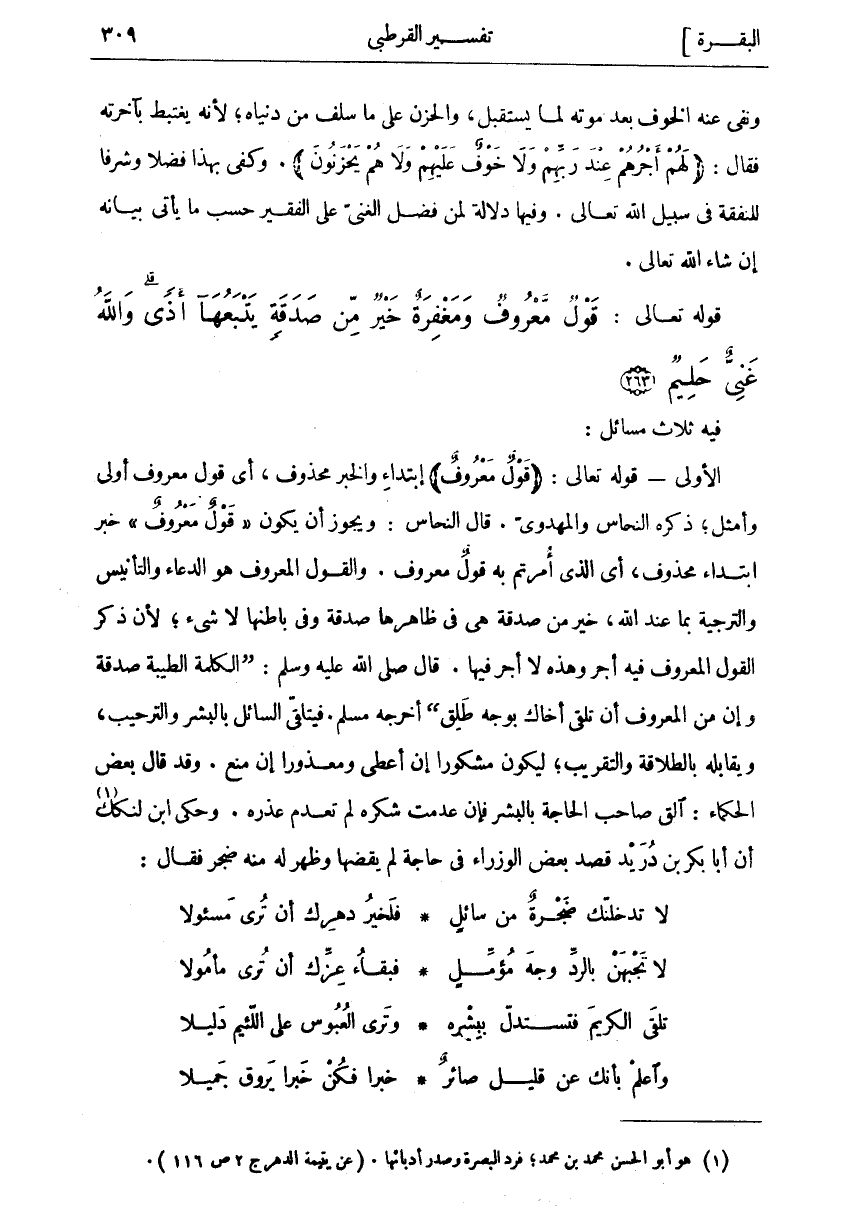 البقـــرة ]
تفســـير القرطبى
٣٠٩
ونفى عنه الخوف بعد موته لمـا يستقبل، والحزن على ما سلف من دنياه؛ لأنه يغتبط بآخرته
فقال : ﴿ لَهُمْ أَجْرُهُمْ عِنْدَ رَبِّهِمْ وَلَا خَوْفٌ عَلَيْهِمْ وَلَا هُمْ يَحْزَنُونَ ﴾ . وكفى بهذا فضلا وشرفا
للنفقة فى سبيل الله تعـالى . وفيها دلالة لمن فضـل الغنىّ على الفقـير حسب ما يأتى بيـانه
إن شاء الله تعالى .
قوله تعـالى : قَوْلٌ مَّعْرُوفٌ وَمَغْفِرَةٌ خَيْرٌ مِّن صَدَقَةٍ يَتْبَعُهَآ أَذًى ۗ وَاللَّهُ
غَنِىٌّ حَلِيمٌ ﴿٢٦٣﴾
فيه ثلاث مسائل :
الأولى — قوله تعالى : ﴿قَوْلٌ مَعْرُوفٌ﴾ إبتداء والخبر محذوف ، أى قول معروف أولى
وأمثل؛ ذكره النحاس والمهدوىّ . قال النحاس : ويجوز أن يكون « قَوْلٌ مَعْرُوفٌ » خبر
ابتـداء محذوف، أى الذى أُمرتم به قولٌ معروف . والقـول المعروف هو الدعاء والتأنيس
والترجية بما عند الله، خير من صدقة هى فى ظاهرها صدقة وفى باطنها لا شىء ؛ لأن ذكر
القول المعروف فيه أجر وهذه لا أجر فيها . قال صلى الله عليه وسلم : ”الكلمة الطيبة صدقة
وإن من المعروف أن تلقى أخاك بوجه طَلِق“ أخرجه مسلم. فيتلقّى السائل بالبشر والترحيب،
ويقابله بالطلاقة والتقريب؛ ليكون مشكورا إن أعطى ومعـذورا إن منع . وقد قال بعض
الحكماء : آلق صاحب الحاجة بالبشر فإن عدمت شكره لم تعـدم عذره . وحكى ابن لنكك(١)
أن أبا بكر بن دُرَيْد قصد بعض الوزراء فى حاجة لم يقضها وظهر له منه ضجر فقـال :
لا تدخلنّك ضَجْـرةٌ من سائلٍ * فلَخيرُ دهرِك أن تُرى مَسئولا
لا تَجْبَهَنْ بالردِّ وجهَ مُؤمِّــلٍ * فبقـاءُ عِزِّك أن تُرى مأمُولا
تلقَى الكريمَ فتســتدلّ ببِشْرِه * وتَرى العُبُوس على اللّئيم دَليـلا
وٱعلمْ بأنك عن قليـل صائرٌ * خبرا فكُنْ خَبرا يَروق جَميلا
(١) هو أبو الحسن محمد بن محمد؛ فرد البصرة وصدر أدبائها . (عن يتيمة الدهر ج ٢ ص ١١٦ ) .